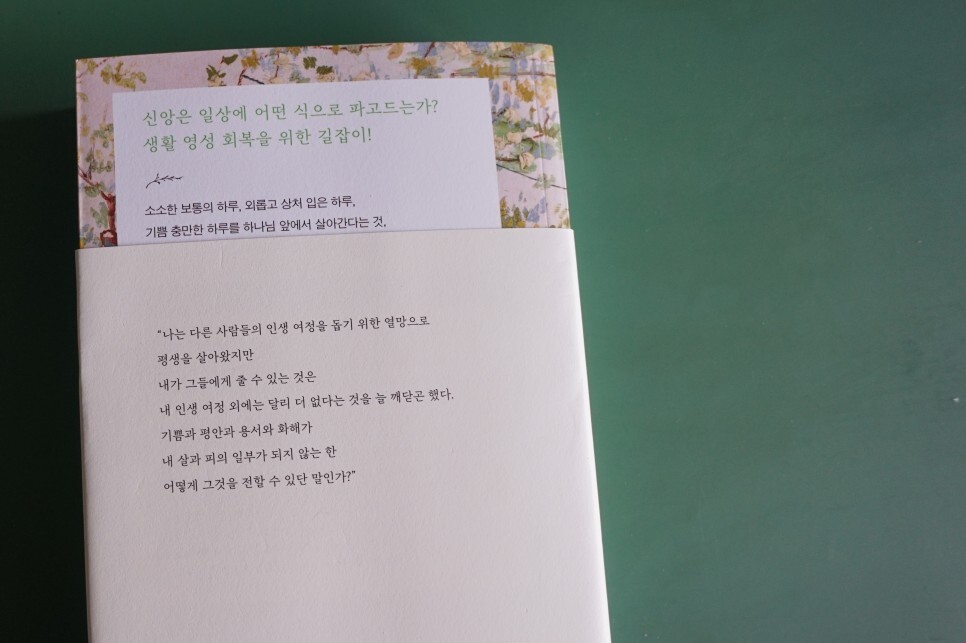 신앙은 일상에 어떤 식으로 파고드는가?
생활 영성 회복을 위한 길잡이!
소소한 보통의 하루, 외롭고 상처 입은 하루,
기쁨 충만한 하루를 하나님 앞에서 살아간다는 것,
“나는 다른 사람들의 인생 여정을 돕기 위한 열망으로
평생을 살아왔지만
내가 그들에게 줄 수 있는 것은
내 인생 여정 외에는 달리 더 없다는 것을 늘 깨닫곤 했다.
기쁨과 평안과 용서와 화해가
내 살과 피의 일부가 되지 않는 한
어떻게 그것을 전할 수 있단 말인가?”